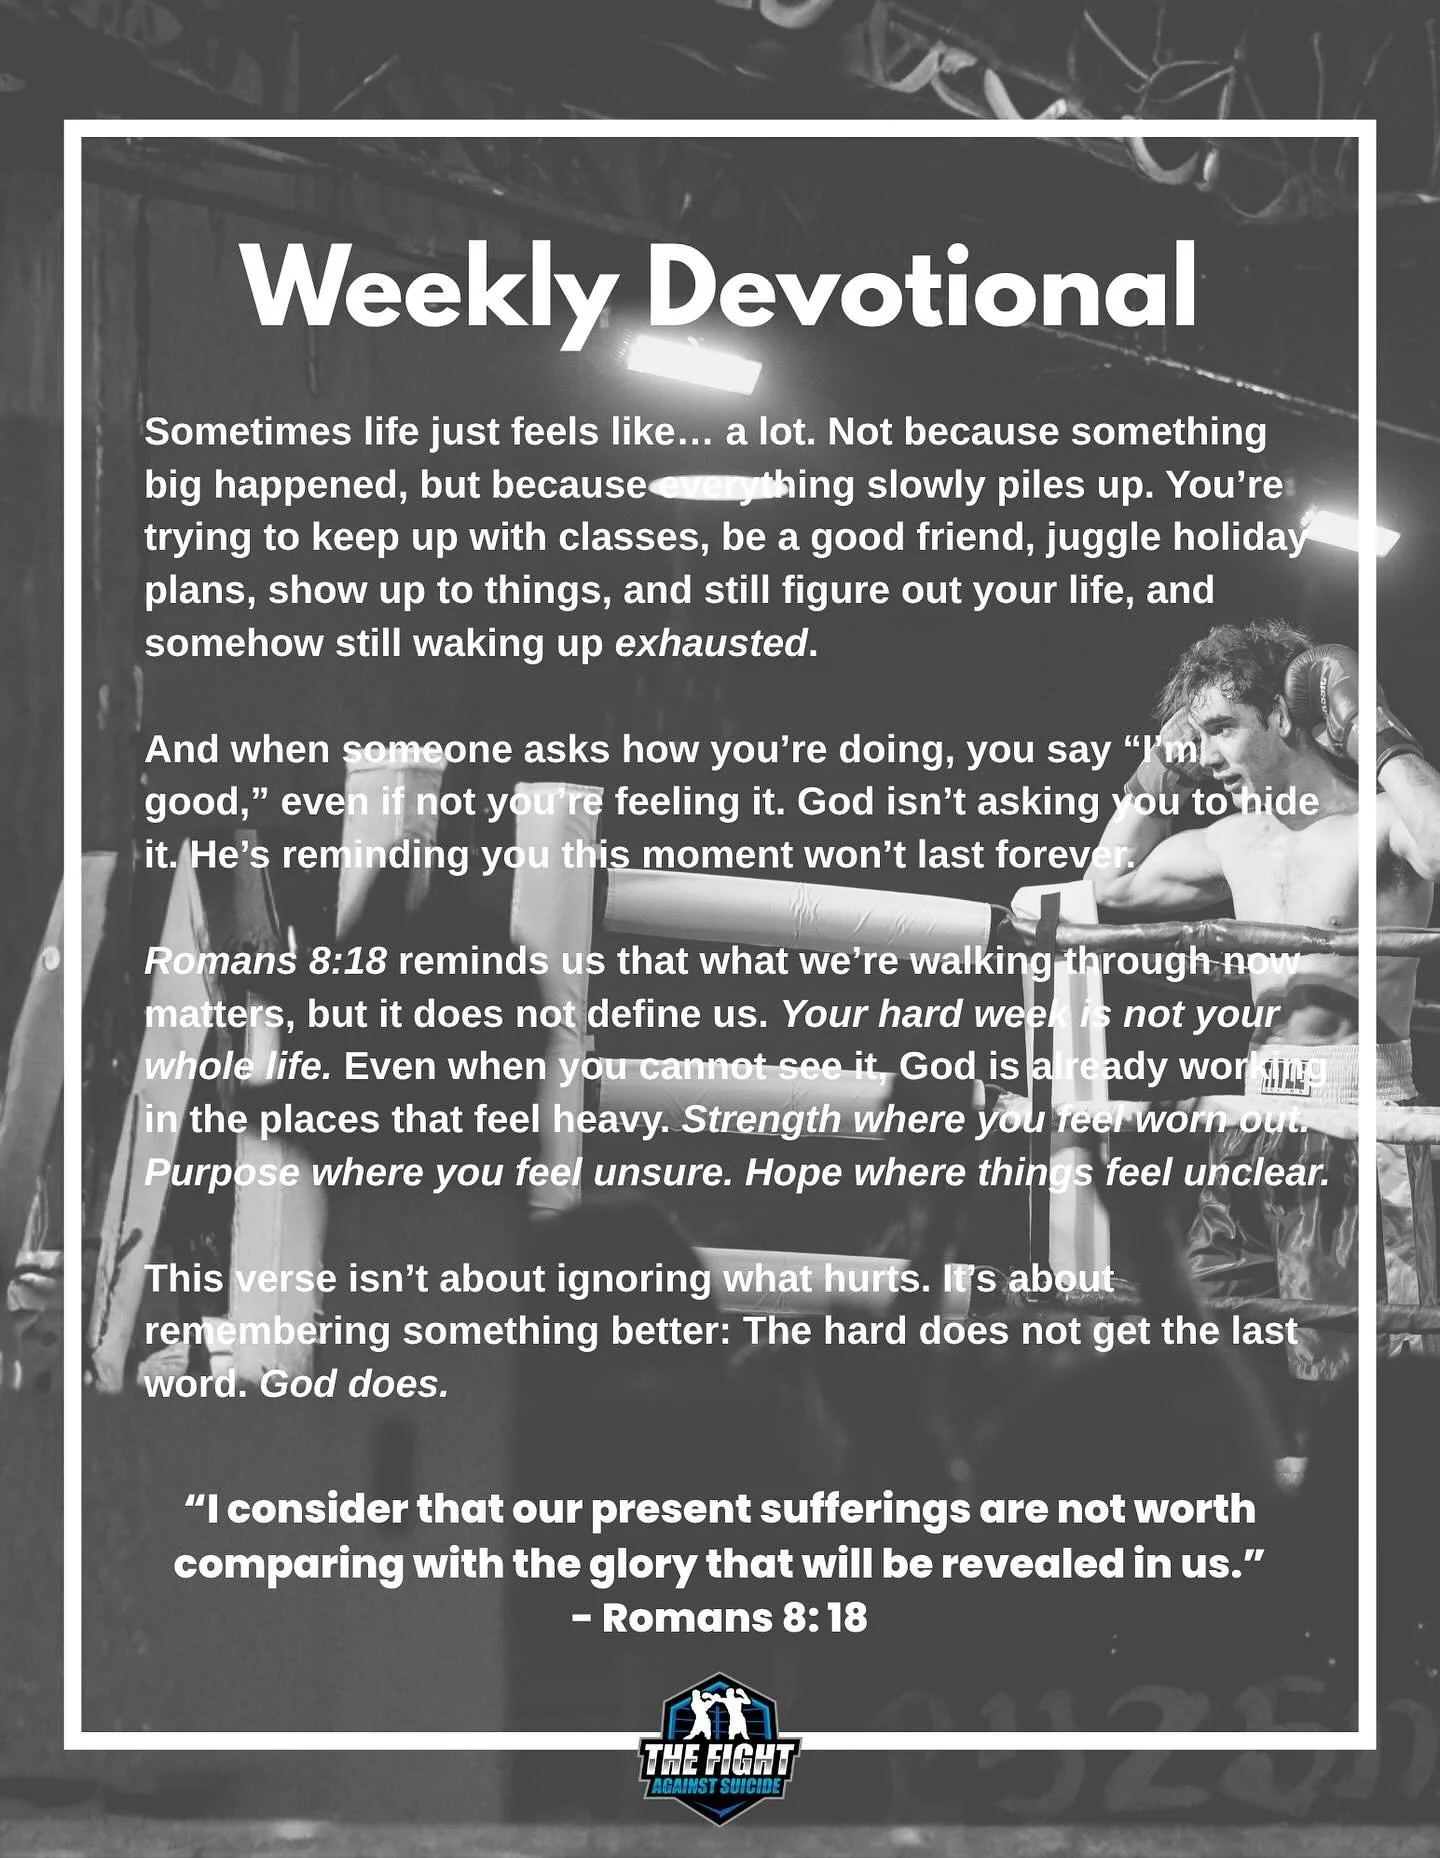 Weekly Devotional
Sometimes life just feels like… a lot. Not because something
big happened, but because everything slowly piles up. You’re
trying to keep up with classes, be a good friend, juggle holiday
plans, show up to things, and still figure out your life, and
somehow still waking up exhausted.
And when someone asks how you’re doing, you say “I’m
good,” even if not you’re feeling it. God isn’t asking you to hide
it. He’s reminding you this moment won’t last forever.
Romans 8:18 reminds us that what we’re walking through now
matters, but it does not define us. Your hard week is not your
whole life. Even when you cannot see it, God is already working
in the places that feel heavy. Strength where you feel worn out.
Purpose where you feel unsure. Hope where things feel unclear.
This verse isn’t about ignoring what hurts. It’s about
remembering something better: The hard does not get the last
word. God does.
“I consider that our present sufferings are not worth
comparing with the glory that will be revealed in us.”
- Romans 8:18
THE FIGHT
AGAINST SUICIDE